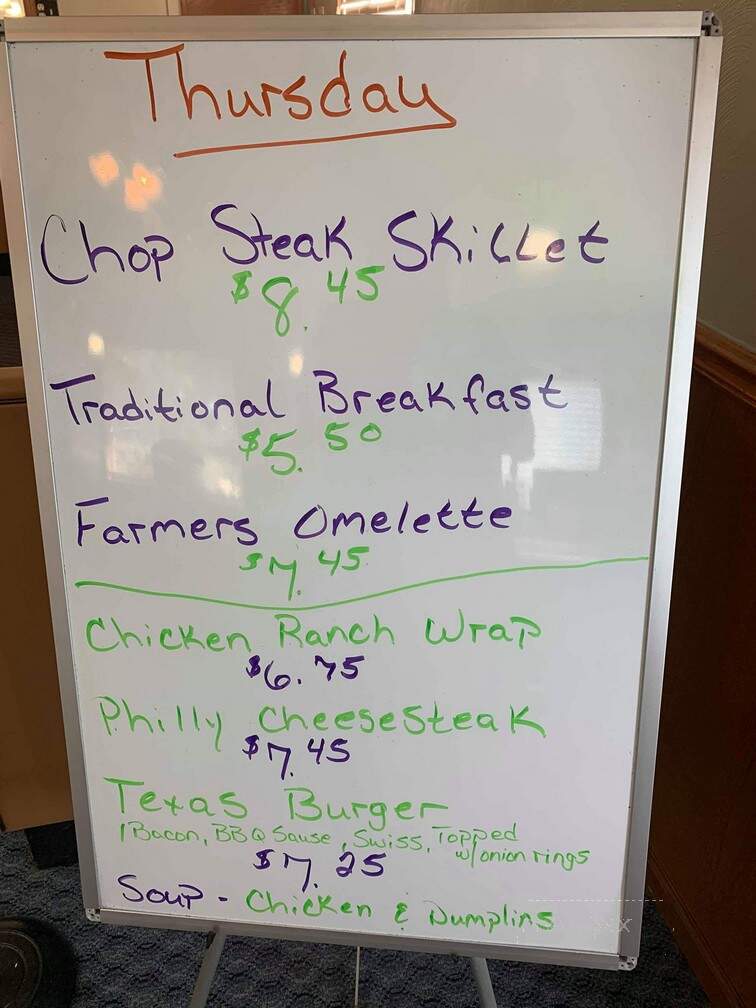 Thursday
Chop Steak Skillet
$8.45
Traditional Breakfast
$5.50
Farmers Omelette
$7.45
Chicken Ranch Wrap
$6.75
Philly CheeseSteak
$7.45
Texas Burger
Bacon, BBQ Sause, Swiss, Topped
w/onion rings
$7.25
Soup - Chicken & Dumplins